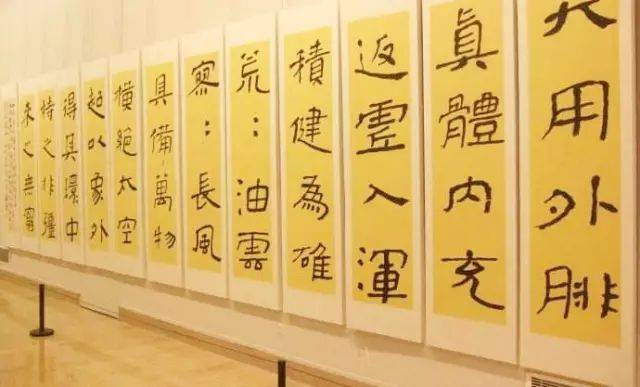 大用外腓
真體內充
返虛入渾
積健為雄
荒：油雲
寥：長風
具備萬物
橫絕太空
超以象外
得其環中
持之非彊
來之無窮